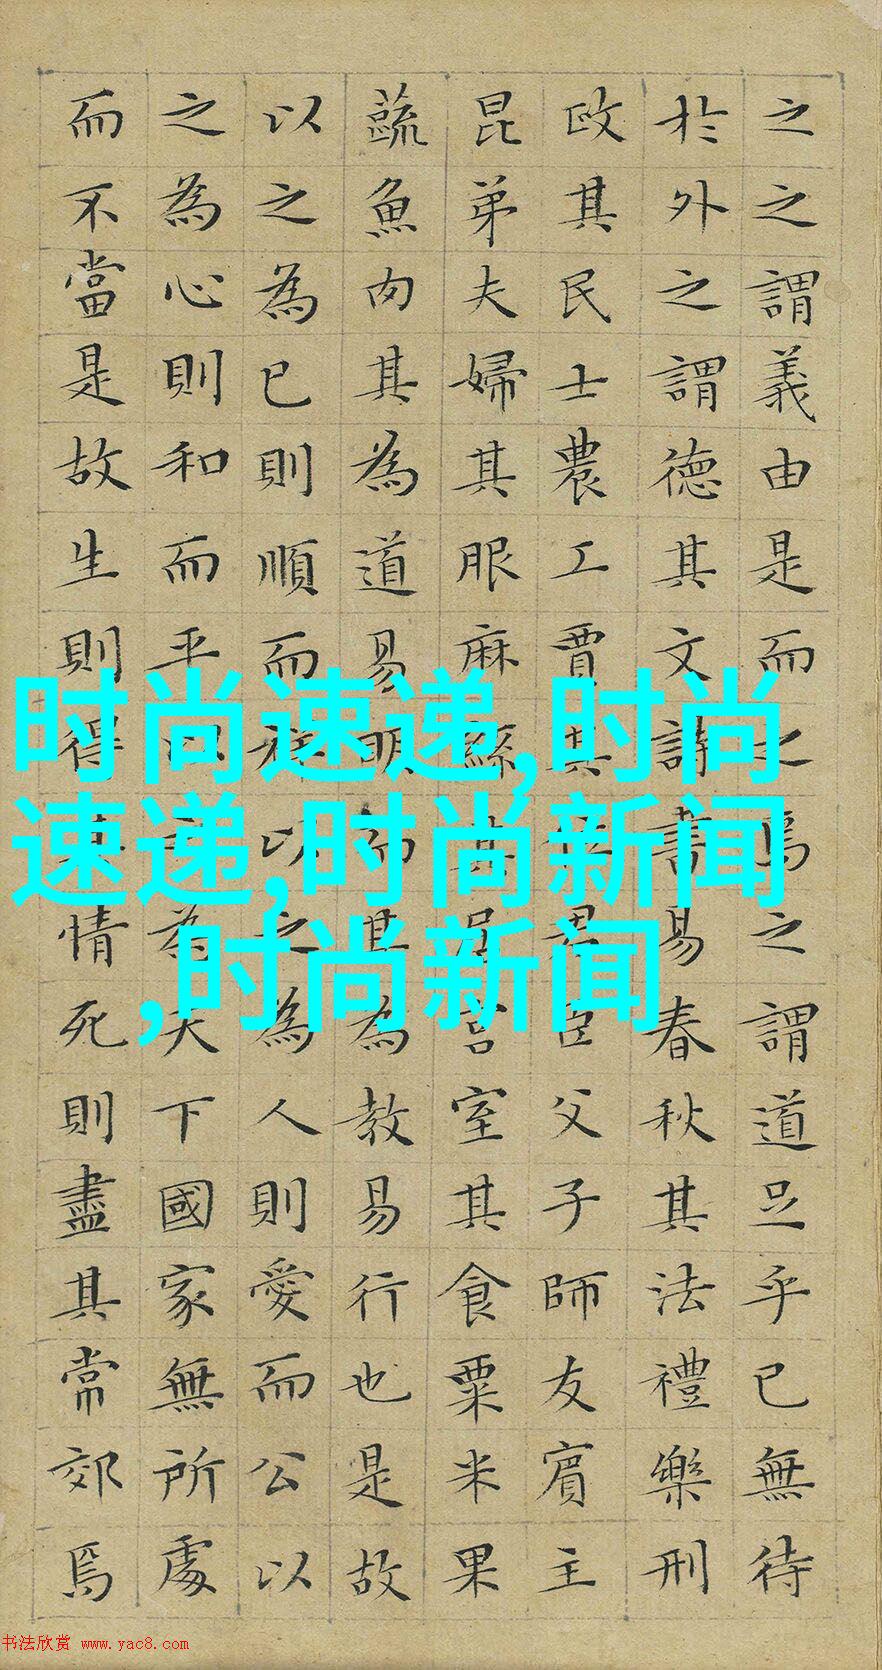 之之謂義由是而之焉之謂道足乎已無待
於外之謂德其文詩書易春秋其法禮樂刑
政其民士農工賈其君臣父子師友賓主
昆弟夫婦其服麻絲其居宮室其食粟米果
蔬魚肉其為道易明而其為教易行也是故
以之為已則順而祥以之為人則愛而公以
之為心則和而平以為天下國家無所處
而不當是故生則得情死則盡其常郊焉
时尚速递,时尚
速递,时尚新闻
,时尚新闻
书法欣赏 www.yac8.com